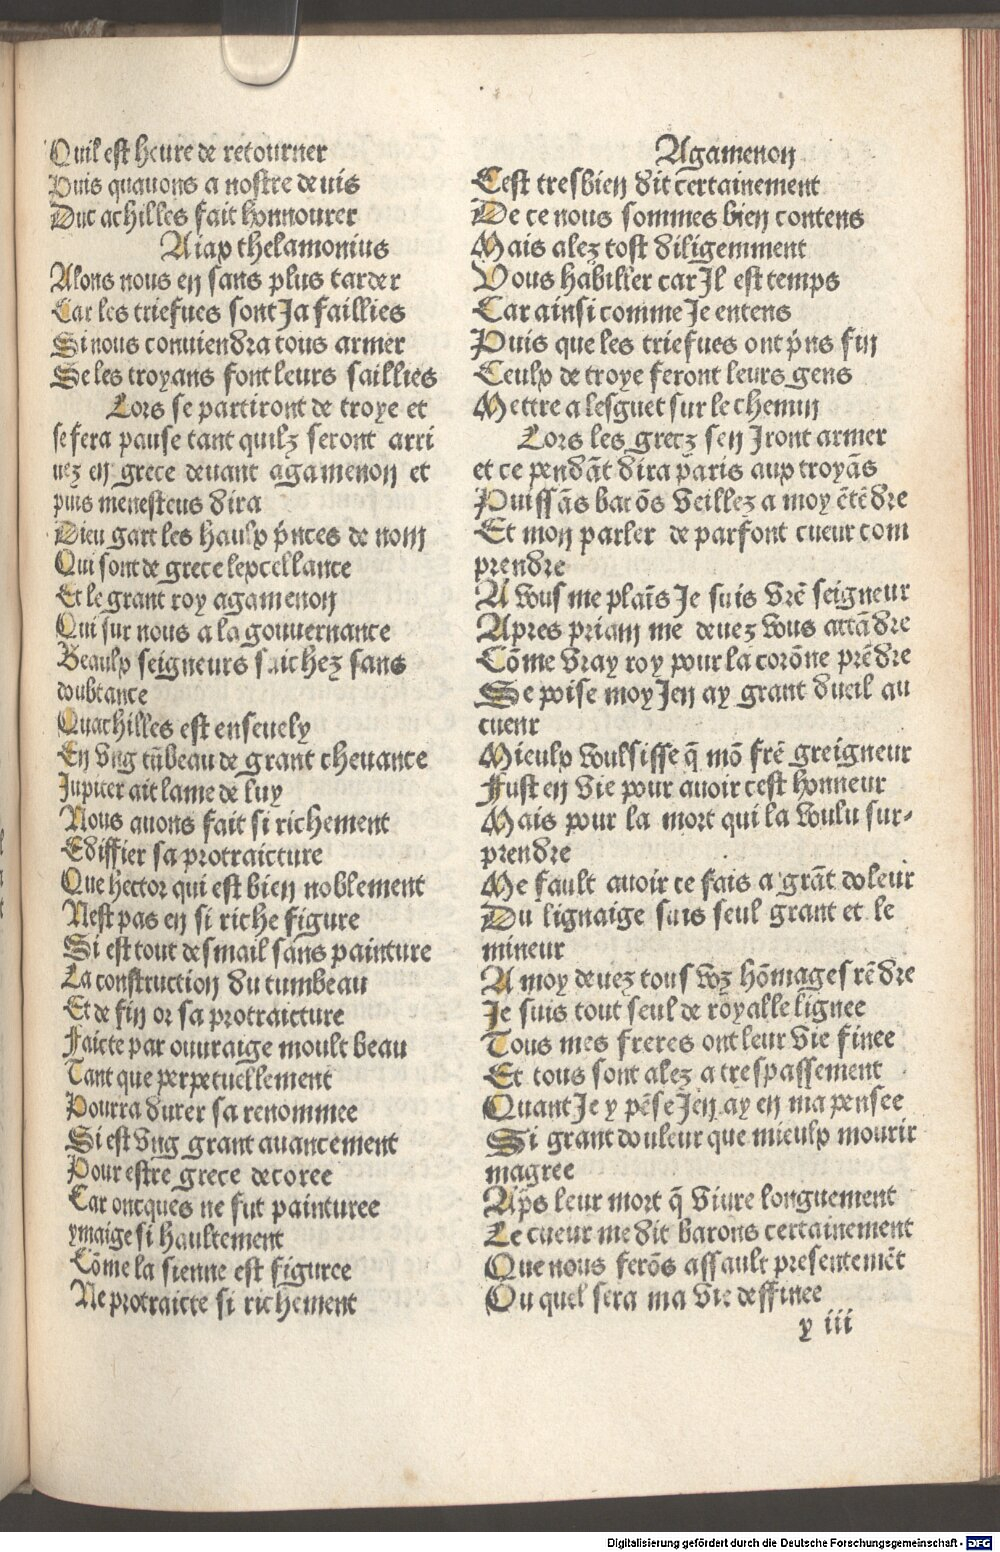 Quil est heure de retourner
Puis quauons a nostre deuis
Duc achilles fait honnourer
Aiax thelamonius
Alons nous en sans plus tarder
Car les triefues sont Ja faillies
Si nous conuiendra tous armer
Se les troyans font leurs saillies
Lors se partiront de troye et
se fera pause tant quilz seront arri
uez en grece deuant agamenon et
puis menesteus dira
Dieu gart les haulx p̄nces de nom
Qui sont de grece lexcellance
Et le grant roy agamenon
Qui sur nous a la gouuernance
Beaulx seigneurs saichez sans
doubtance
Quachilles est enseuely
En vng tūbeau de grant cheuance
Jupiter ait lame de luy
Nous auons fait si richement
Ediffier sa protraicture
Que hector qui est bien noblement
Nest pas en si riche figure
Si est tout desmail sans painture
La construction du tumbeau
Et de fin or sa protraicture
Faicte par ouuraige moult beau
Tant que perpetuellement
Pourra durer sa renommee
Si est vng grant auancement
Pour estre grece decoree
Car oncques ne fut painturee
ymaige si haultement
Cōme la sienne est figuree
Ne protraicte si richement
Agamenon
Cest tresbien dit certainement
De ce nous sommes bien contens
Mais alez tost diligemment
Vous habilier car Jl est temps
Car ainsi comme Je entens
Puis que les triefues ont p̄ns fin
Ceulx de troye feront leurs gens
Mettre a lesguet sur le chemin
Lors les grecz sen Jront armer
et ce pendāt dira paris aux troyās
Puissās barōs veillez a moy ētēdre
Et mon parler de parfont cueur com
prendre
A vous me plaīs Je suis vrē seigneur
Apres priam me deuez vous attādre
Cōme vray roy pour la corōne prēdre
Se poise moy Jen ay grant dueil au
cueur
Mieulx voulsisse q̄ mō frē greigneur
Fust en vie pour auoir cest honneur
Mais pour la mort qui la voulu sur-
prendre
Me fault auoir ce fais a grāt doleur
Du lignaige suis seul grant et le
mineur
A moy deuez tous voz hōmages rēdre
Je suis tout seul de royalle lignee
Tous mes freres ont leur vie finee
Et tous sont alez a trespassement
Quant Je y pēse Jen ay en ma pensee
Si grant douleur que mieulx mourir
magree
Ap̄s leur mort q̄ viure longuement
Le cueur me dit barons certainement
Que nous ferōs assault presentemēt
Ou quel sera ma vie deffinee
y iii
Digitalisierung gefördert durch die Deutsche Forschungsgemeinschaft - DFG